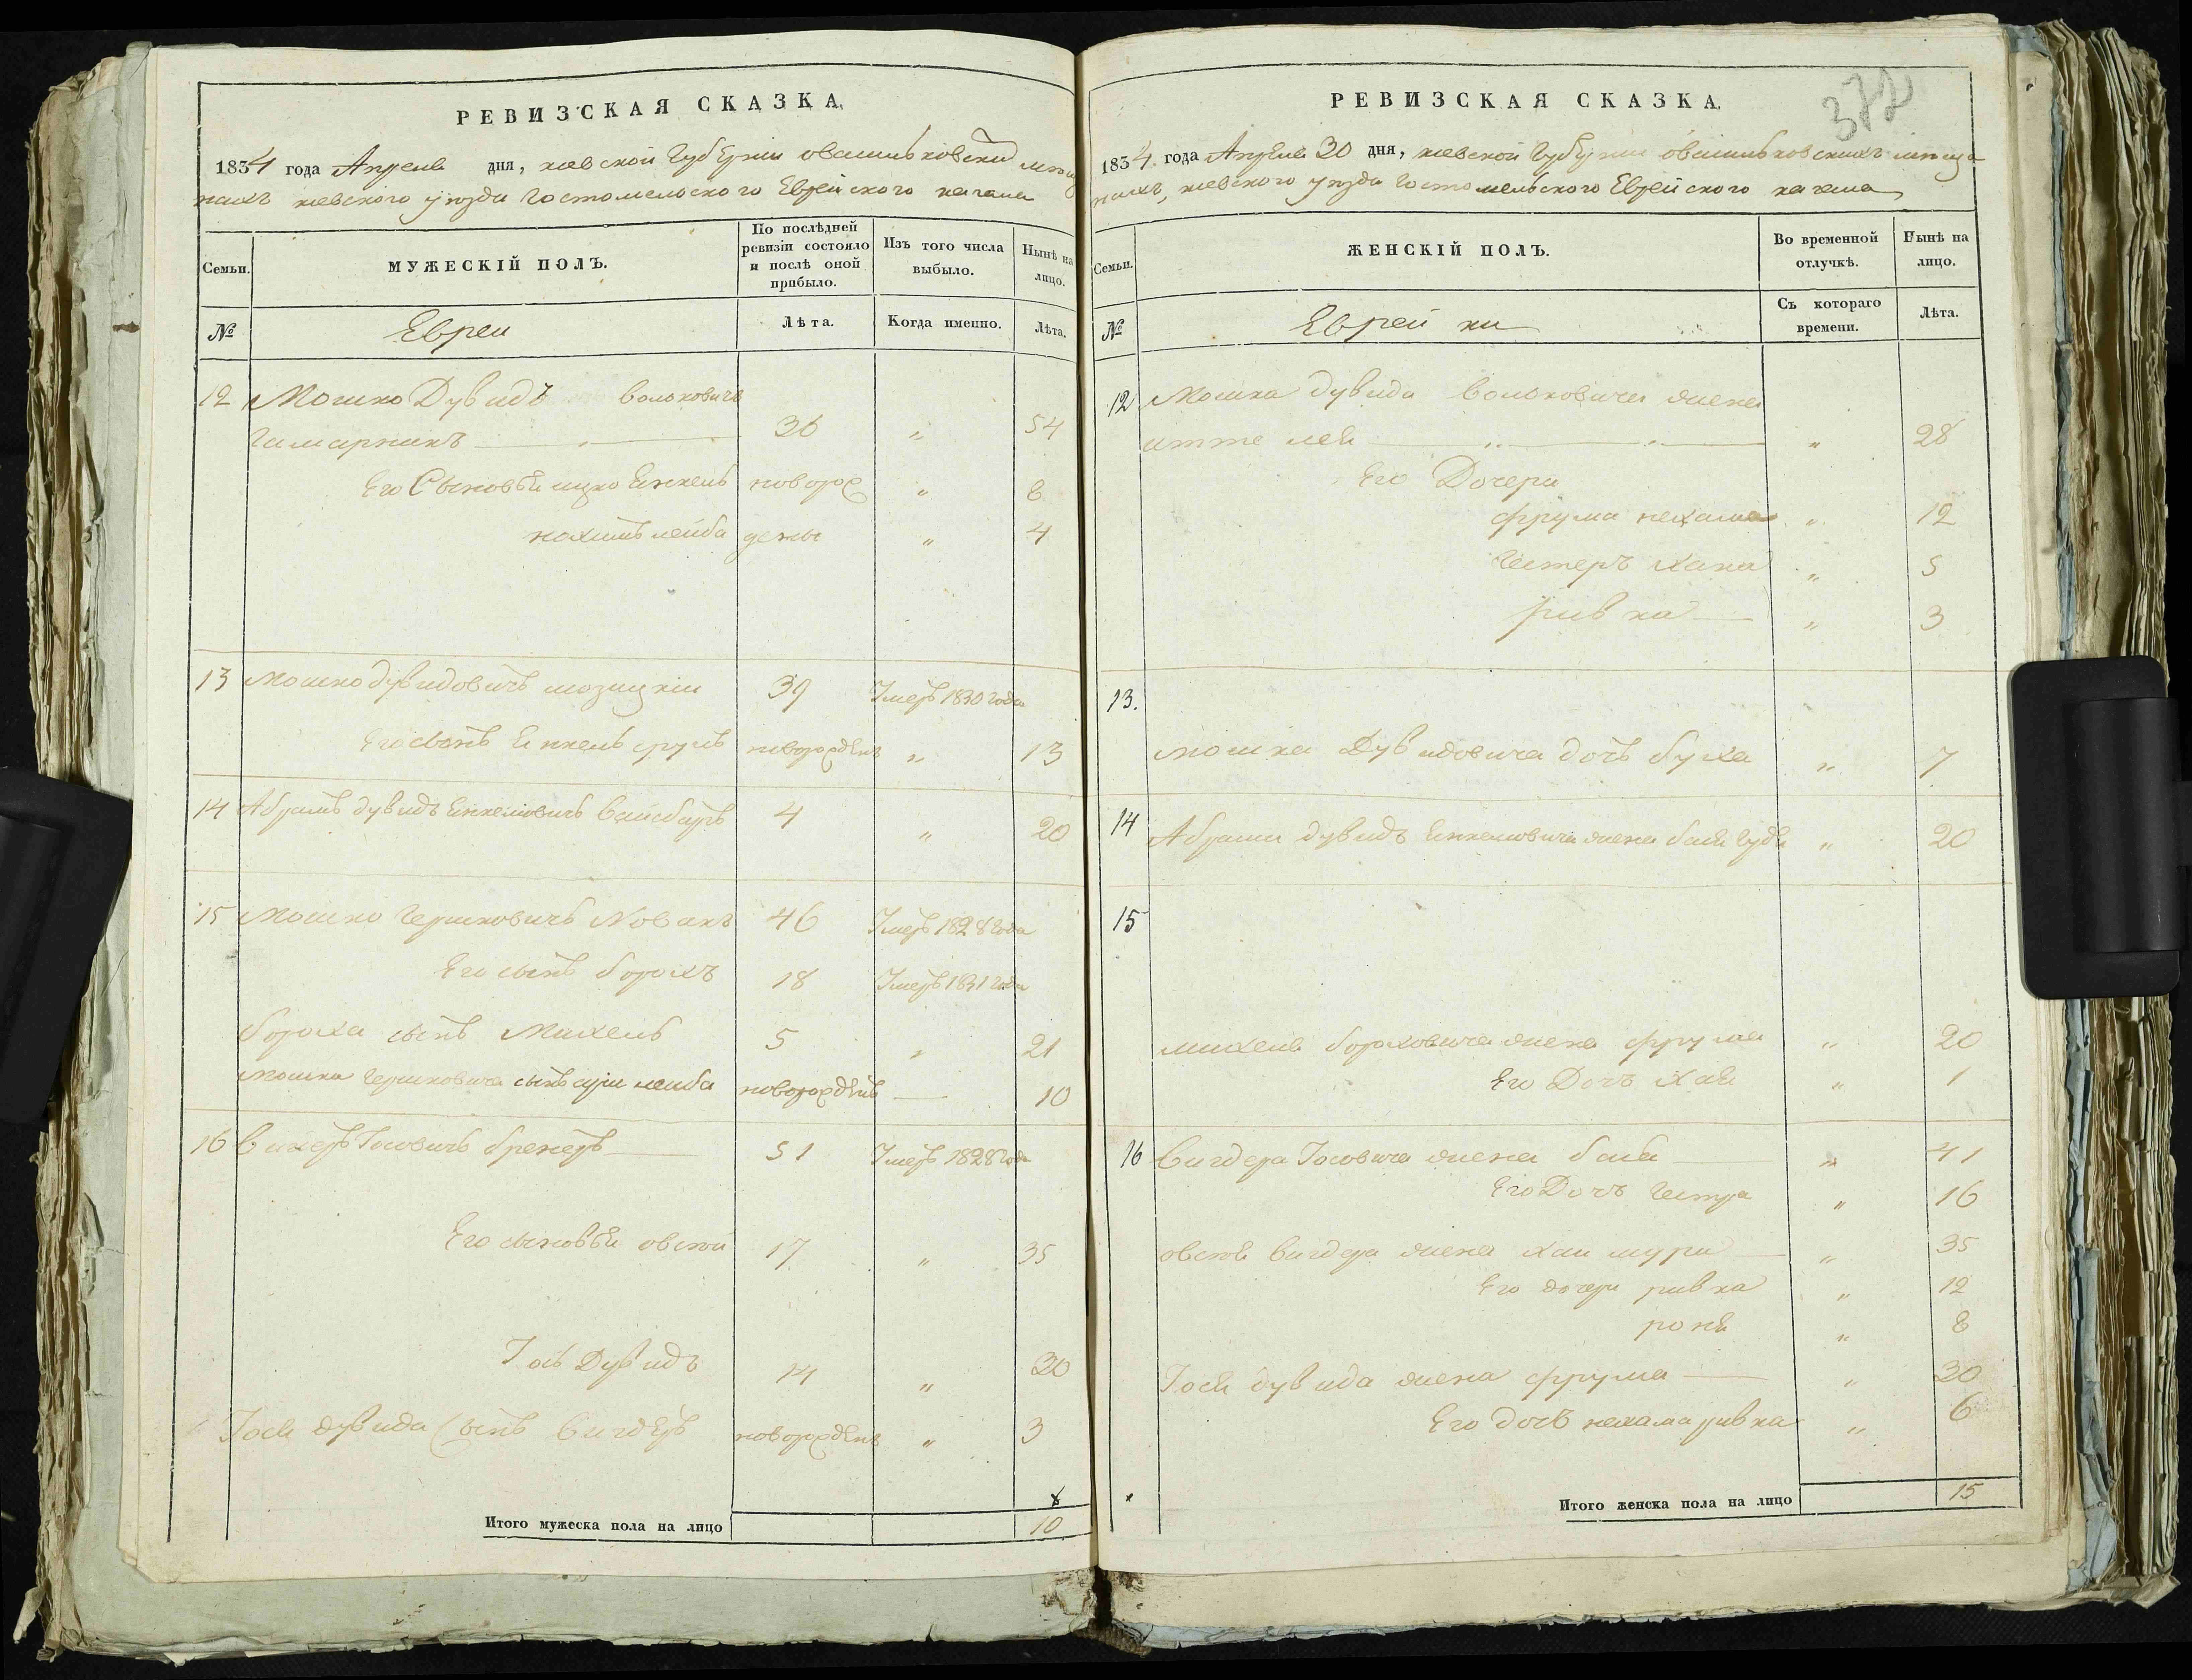 РЕВИЗСКАЯ СКАЗКА.
1834 года Апреля дня, киевской Губернии овасильковский мѣща
нахъ киевского уѣзда Гостомельского Еврейского кагала
Семьи.
МУЖЕСКІЙ ПОЛЪ.
По послѣдней ревизіи состояло и послѣ оной прибыло.
Изъ того числа выбыло.
Нынѣ на лицо.
№
Евреи
Лѣта.
Когда именно.
Лѣта.
12 Мошко Дувидъ Вольковичъ
Гимарникъ 36 „ 54
Его Сыновья ицко Енкель новорож „ 8
нахимъ лейба дены „ 4
13 Мошко дувидовичъ мозицкіи 39 Умеръ 1830 года
Его сынъ Енкель сруль новорожденъ „ 13
14 Абрамъ дувидъ Енкелиовичъ Вайсбаръ 4 „ 20
15 Мошко Гершковичъ Новакъ 46 Умеръ 1828 года
Его сынъ борохъ 18 Умеръ 1831 года
бороха сынъ Михель 5 „ 21
Мошка Гершковича сынъ сруль лейба новорожденъ 10
16 Іосовичъ бренеръ 51 Умеръ 1828 года
Его сыновья овсей 17 „ 35
Іось Дувидъ 14 „ 30
Іося дувида Сынъ Вигдеръ новорожденъ „ 3
Итого мужеска пола на лицо 10
372
РЕВИЗСКАЯ СКАЗКА.
1834 года Апреля 30 дня, киевской Губернии овасильковскихъ мѣща
нахъ, киевского уѣзда Гостомельского Еврейского кагала
Семьи.
ЖЕНСКІЙ ПОЛЪ.
Во временной отлучкѣ.
Нынѣ на лицо.
№
Еврейки
Съ котораго времени.
Лѣта.
12 Мошка дувида Вольковича жена
итте лея „ 28
Его Дочери
фрума нехама „ 12
Гестеръ хана „ 5
ривка „ 3
13.
Мошка Дувидовича дочь буха „ 7
14 Абрама дувидъ Енкелиовича жена бася Гудя „ 20
15
михеля борховича жена фрума „ 20
Его Дочь хая „ 1
16 Вигдера Іосовича жена бася „ 41
Его Дочь Гестра „ 16
овсея вигдера жена хаи мури „ 35
Его дочери ривка „ 12
роня „ 8
Іося дувида жена фрума „ 30
Его дочь нехама ривка „ 6
Итого женска пола на лицо 15